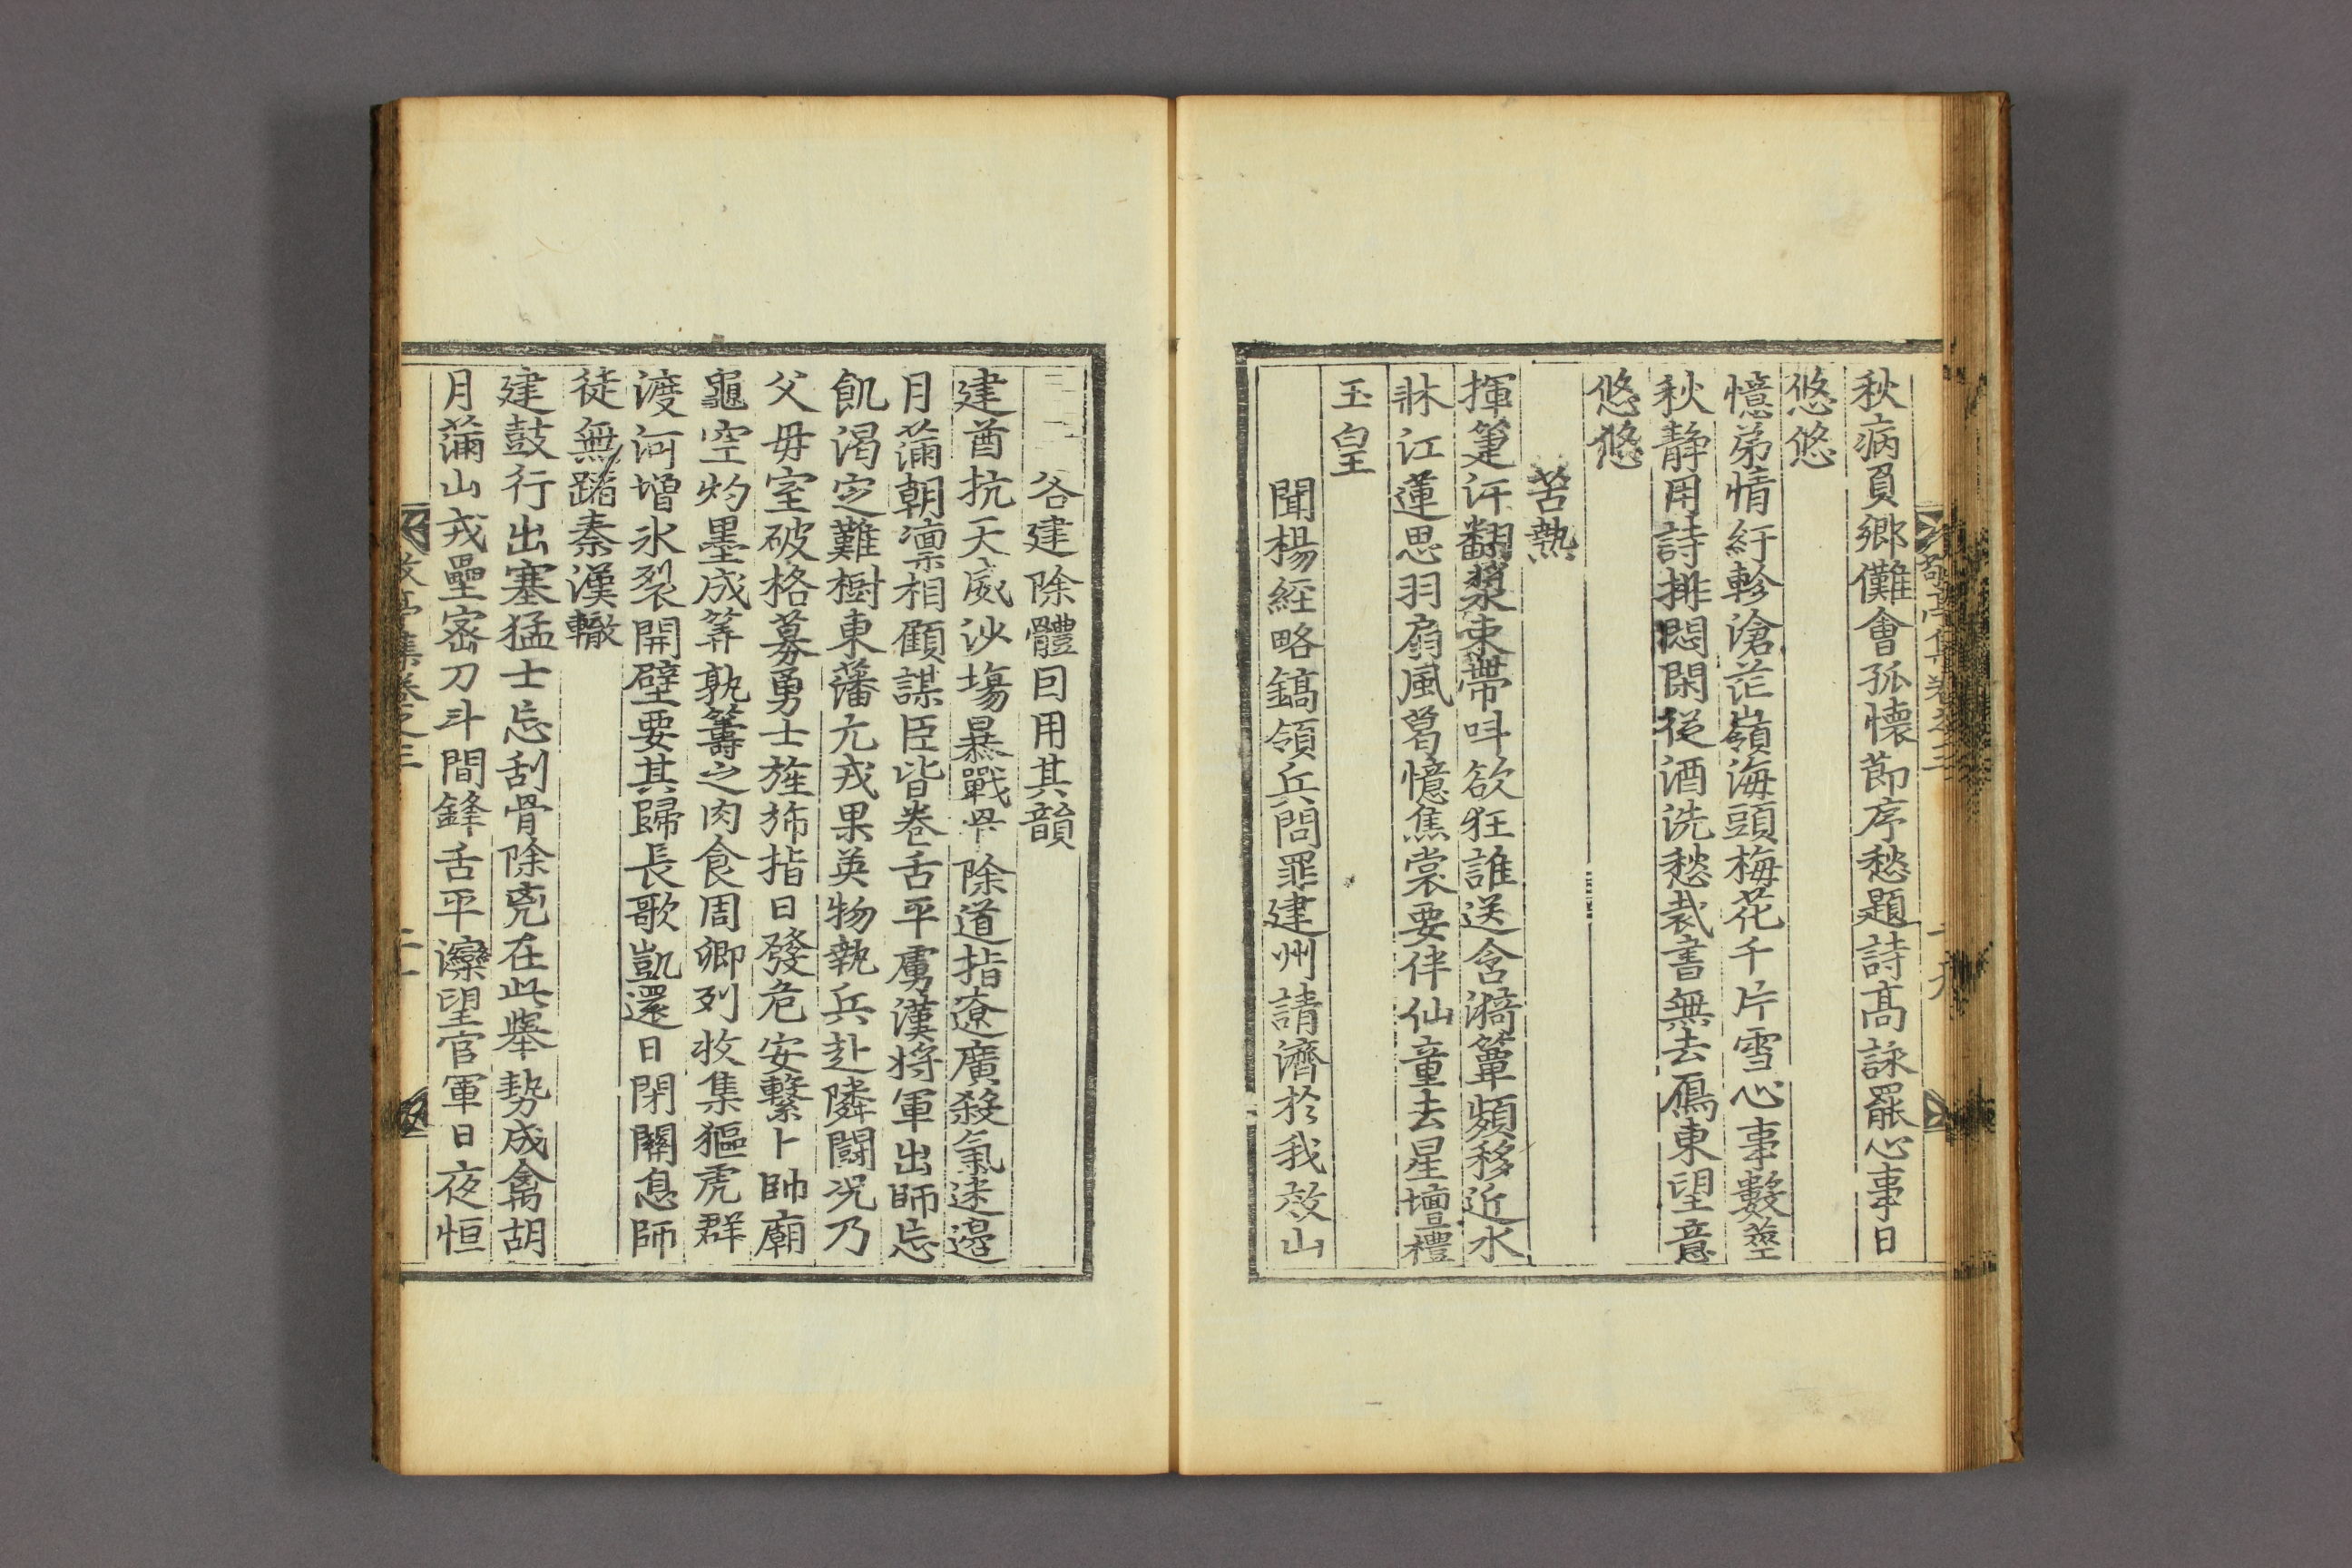 敬亭集卷之三
十九
秋病負鄉儺會孤懷節序愁題詩高詠罷心事日
悠悠
憶弟情紆軫滄茫嶺海頭梅花千片雪心事數莖
秋靜用詩排悶閑從酒洗愁裁書無去鴈東望意
悠悠
苦熱
揮箑汗翻漿束帶呌欲狂誰送含漪簟頻移近水
牀江蓮思羽扇風葛憶焦裳要伴仙童去星壇禮
玉皇
聞楊經略鎬領兵問罪建州請濟於我效山
谷建除體因用其韻
建酋抗天威沙塲暴戰骨除道指遼廣殺氣迷邊
月滿朝凛相顧謀臣皆卷舌平虜漢將軍出師忘
飢渴定難樹東藩亢戎果英物執兵赴隣鬪況乃
父母室破格募勇士旌斾指日發危安繫卜帥廟
龜空灼墨成筭孰籌之肉食周卿列收集貙虎群
渡河增氷裂開壁要其歸長歌凱還日閉關息師
徒無蹈秦漢轍
建鼓行出塞猛士忘刮骨除兇在此擧勢成禽胡
月滿山戎壘密刀斗間鋒舌平濼望官軍日夜恒
敬亭集卷之三
二十